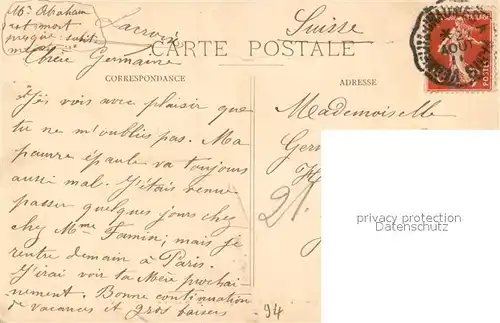 Mr Abraham
est mort
presque subit
Suisse
CARTE POSTALE
Chère Germaine
CORRESPONDANCE
ADRESSE
Je vois avec plaisir que
tu ne m'oublies pas. Ma
pauvre épaule va toujours
aussi mal. J'étais venue
passer quelques jours chez
chez Mme Famin; mais je
rentre demain à Paris.
J'irai voir ta Mère prochai-
nement. Bonne continuation
de vacances et gros baisers
Mademoiselle
Ger
privacy protection
Datenschutz
21
94